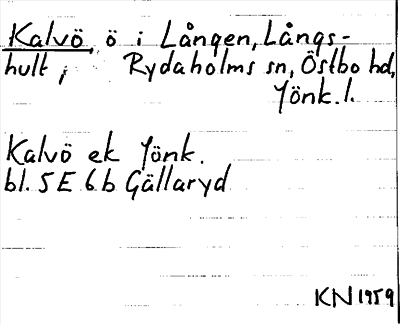 Kalvö, ö i Lången, Långs-
hult, Rydaholms sn, Östbo hd,
Jönk. l.
Kalvö ek Jönk.
bl. 5E 6b Gällaryd
KN 1959